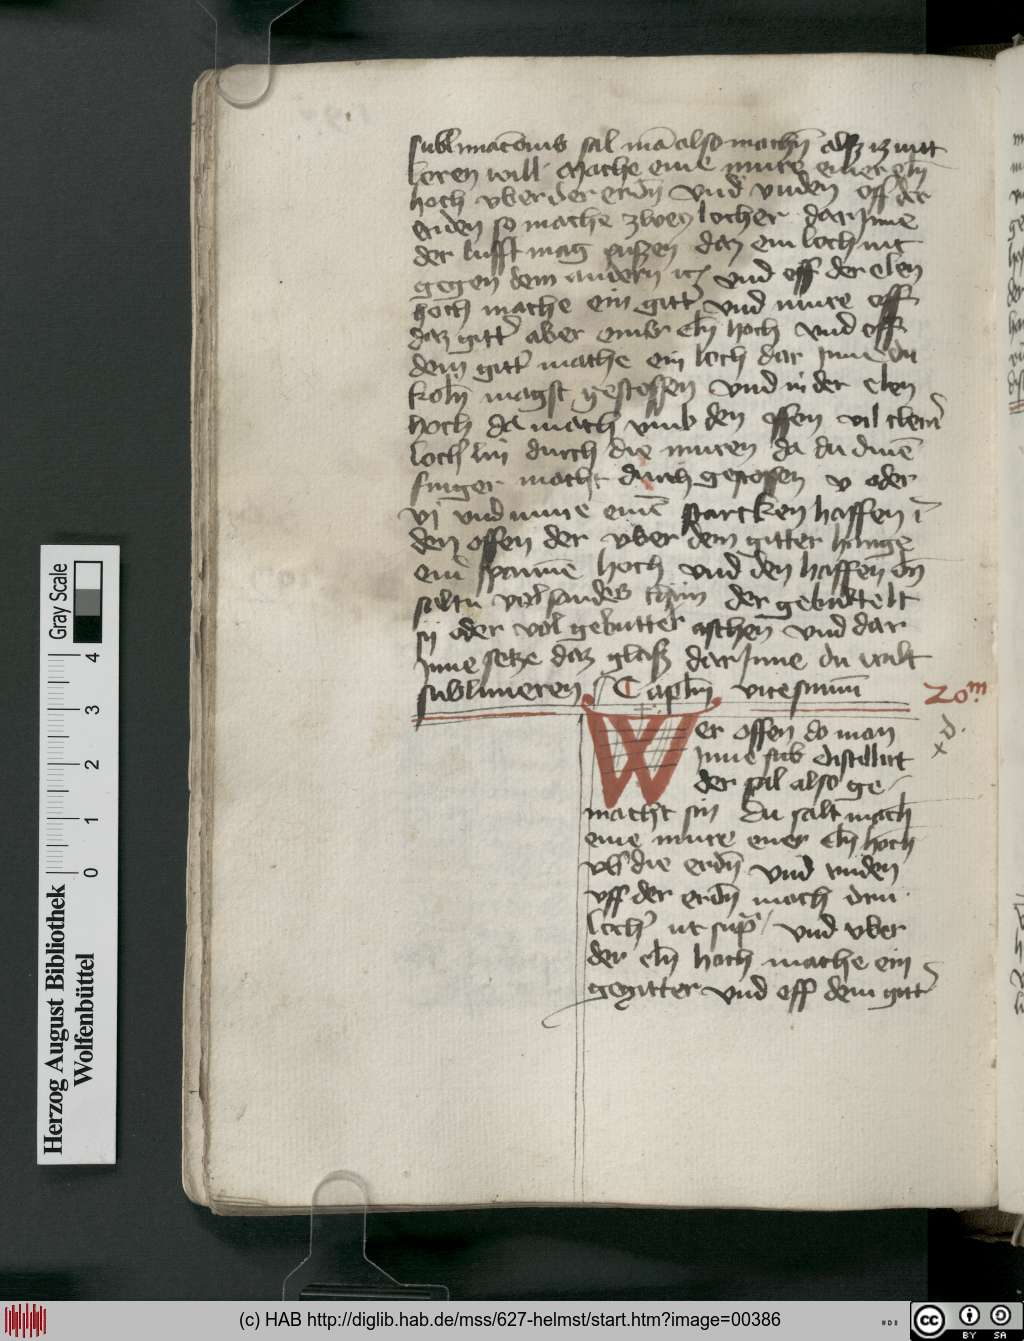 sublimacōnis sal mā also machn̄ alß ꝛc mut
leren will Mache eine mure einer eln̄
hoch vber der erdn̄ vnd vnden vff der
erden so mache zwey locher dar Jnne
der lufft mag daz ein loch nit
gegen dem andern vnd vff der elen
hoch mache ein gitt' vnd mure vff
daz gitt' aber einer eln̄ hoch vnd vff
dem gitt' mache ein loch dar Jnne du
koln̄ magst gestossen vnd in der elen
hoch da mach vmb den offen vil cleinˀ
loch lin durch die muren da du dinē
finger macht durch gestossen v oder
vj vnd nime einē starcken haffen ī
den offen der vber dem gitter hange
ein spanne hoch vnd den haffen
saltu vol sandes thun der gebuttelt
sy oder vol gebutter aschen vnd dar
Jnne setze daz glaß dar Jnne du wilt
sublimeren Capłm vicesimum
20m
Wer offen do man
Jnne sub distillirt
der sal also ge
macht sin du salt mach
eine mure einer eln̄ hoch
vb' die erdn̄ vnd vnden
vff der erdn̄ mach drii
loch' ut sup̄ vnd vber
der eln̄ hoch mache ein
gegitter vnd vff dem gitt'
Herzog August Bibliothek
Wolfenbüttel
Gray Scale
0 1 2 3 4
(c) HAB http://diglib.hab.de/mss/627-helmst/start.htm?image=00386
cc BY SA